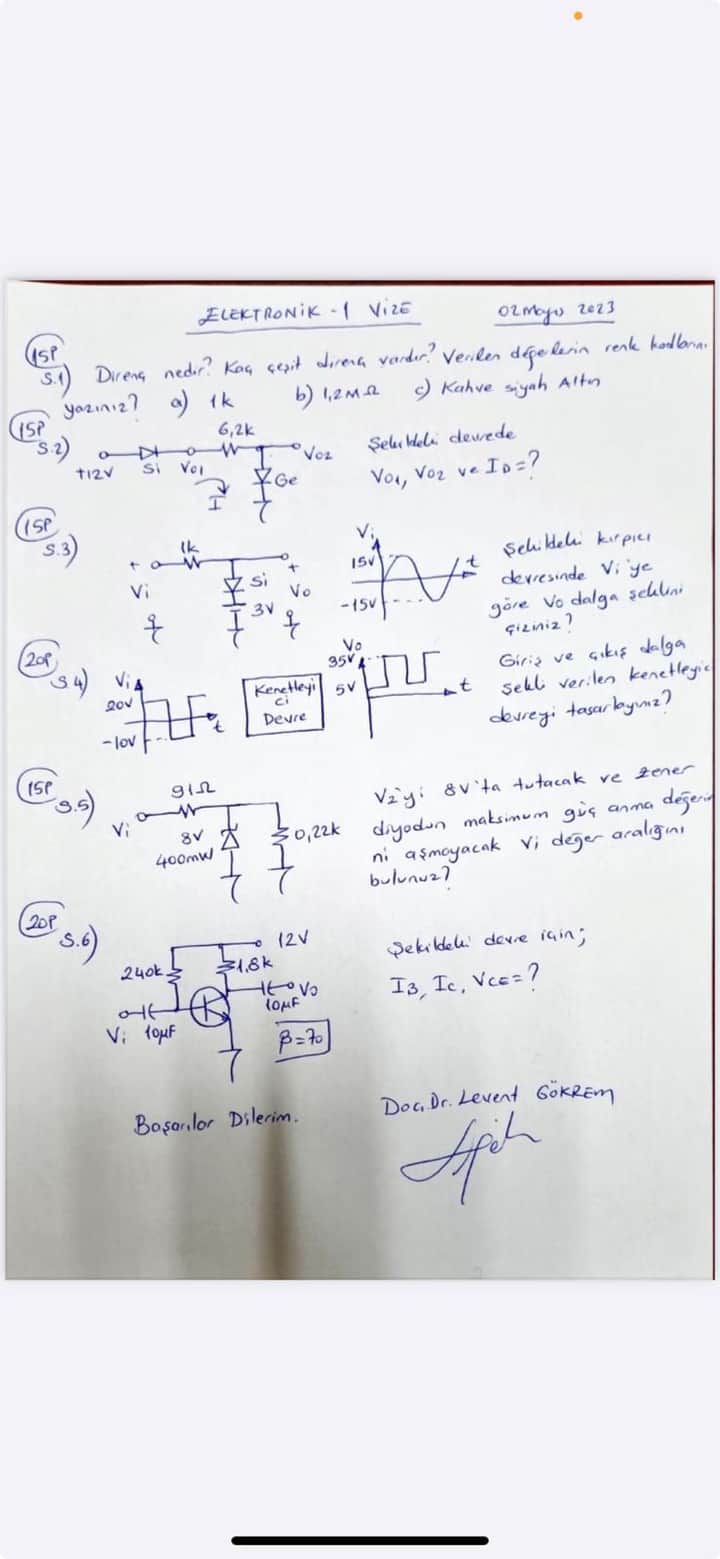 ELEKTRONİK - 1 VİZE
02 Mayıs 2023
15P
S.1) Direnç nedir? Kaç çeşit direnç vardır? Verilen değerlerin renk kodlarını
yazınız? a) 1k b) 1,2MΩ c) Kahve siyah Altın
15P
S.2)
6,2k
+12V Si Vo1 I Ge Vo2
Şekildeki devrede
Vo1, Vo2 ve ID=?
15P
S.3)
1k
+ Vi Si 3V + Vo
Vi 15V -15V t
Şekildeki kırpıcı
devresinde Vi'ye
göre Vo dalga şeklini
çiziniz?
20P
S4)
Vi 20V -10V t
Kenetleyi
ci
Devre
Vo 35V 5V t
Giriş ve çıkış dalga
şekli verilen kenetleyici
devreyi tasarlayınız?
15P
S.5)
91Ω
Vi 8V 400mW 0,22k
Vz'yi 8V'ta tutacak ve zener
diyodun maksimum güç anma değeri
ni aşmayacak Vi değer aralığını
bulunuz?
20P
S.6)
12V
240k 1,8k
Vo
10μF
Vi 10μF
β=70
Şekildeki devre için;
IB, Ic, VCE=?
Başarılar Dilerim.
Doç.Dr. Levent GÖKREM